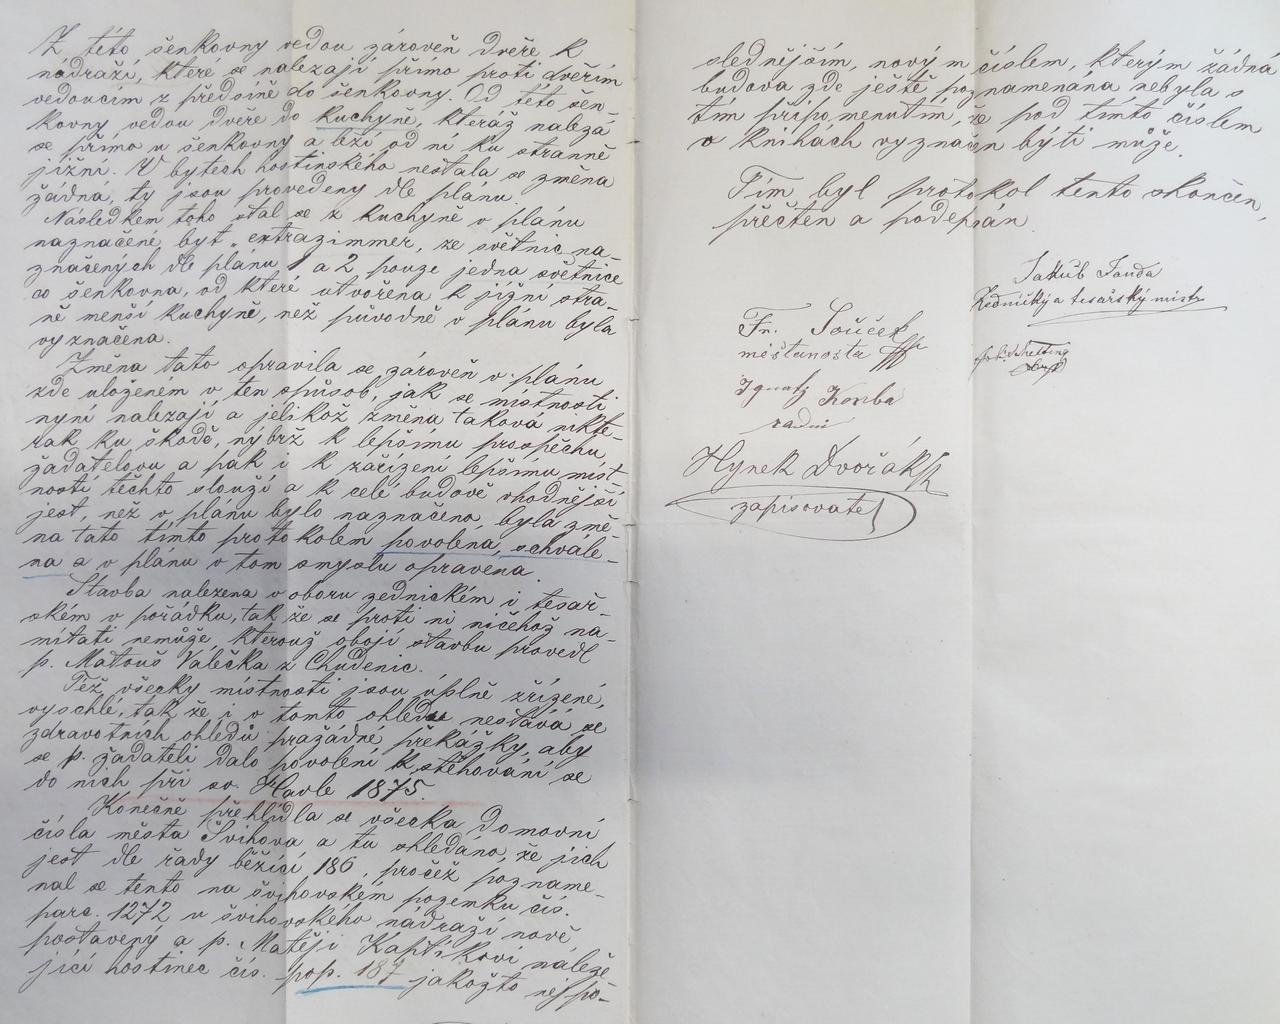 Z této šenkovny vedou zároveň dveře k
nádraží, které se nalezají přímo proti dveřím
vedoucím z předsíně do šenkovny. Od této šen
kovny vedou dveře do kuchyně, kteráž nalezá
se přímo u šenkovny a leží od ní ku stranně
jižní. V bytech hostinského nestala se změna
žádná, ty jsou provedeny dle plánu.
Následkem toho stal se z kuchyně v plánu
naznačené byt „extrazimmer, ze světnic na-
značených dle plánu 1 a 2 pouze jedna světnice
co šenkovna, od které utvořena k jižní stra-
ně menší kuchyně, než původně v plánu byla
vyznačena.
Změna tato opravila se zároveň v plánu
zde uloženém v ten spůsob, jak se místnosti
nyní nalezají a jelikož změna taková nikte-
rak ku škodě, nýbrž k lepšímu prospěchu
žadatelovu a pak i k zařízení lepšímu míst-
ností těchto slouží a k celé budově vhodnější
jest, než v plánu bylo naznačeno, byla změ-
na tato tímto protokolem povolena, schvále-
na a v plánu v tom smyslu opravena.
Stavba nalezena v oboru zednickém i tesař-
ském v pořádku, tak že se proti ní ničehož na-
mítati nemůže, kterouž obojí stavbu provedl
p. Matouš Valečka z Chudenic.
Též všecky místnosti jsou úplně zřízené,
vyschlé, tak že i v tomto ohledu nestává se
zdravotních ohledů pražádné překážky, aby
se p. žadateli dalo povolení k stěhování se
do nich při sv. Havle 1875.
Konečně přehlídla se všecka domovní
čísla města Švihova a tu shledáno, že jich
jest dle řady běžící 186, pročež pozname-
nal se tento na švihovském pozemku čís.
parc. 1272 u švihovského nádraží nově
postavený a p. Matěji Kaplíkovi náleže-
jící hostinec čís. pop. 187 jakožto nejpo-
slednějším, novým číslem, kterým žádná
budova zde ještě poznamenána nebyla s
tím připomenutím, že pod tímto číslem
v knihách vyznačen býti může.
Tím byl protokol tento skončen,
přečten a podepsán.
Jakub Janda
Zednický a tesařský mistr
Fr. Souček
měšťanosta
Ignatz Korba
radní
Hynek Dvořák
zapisovatel